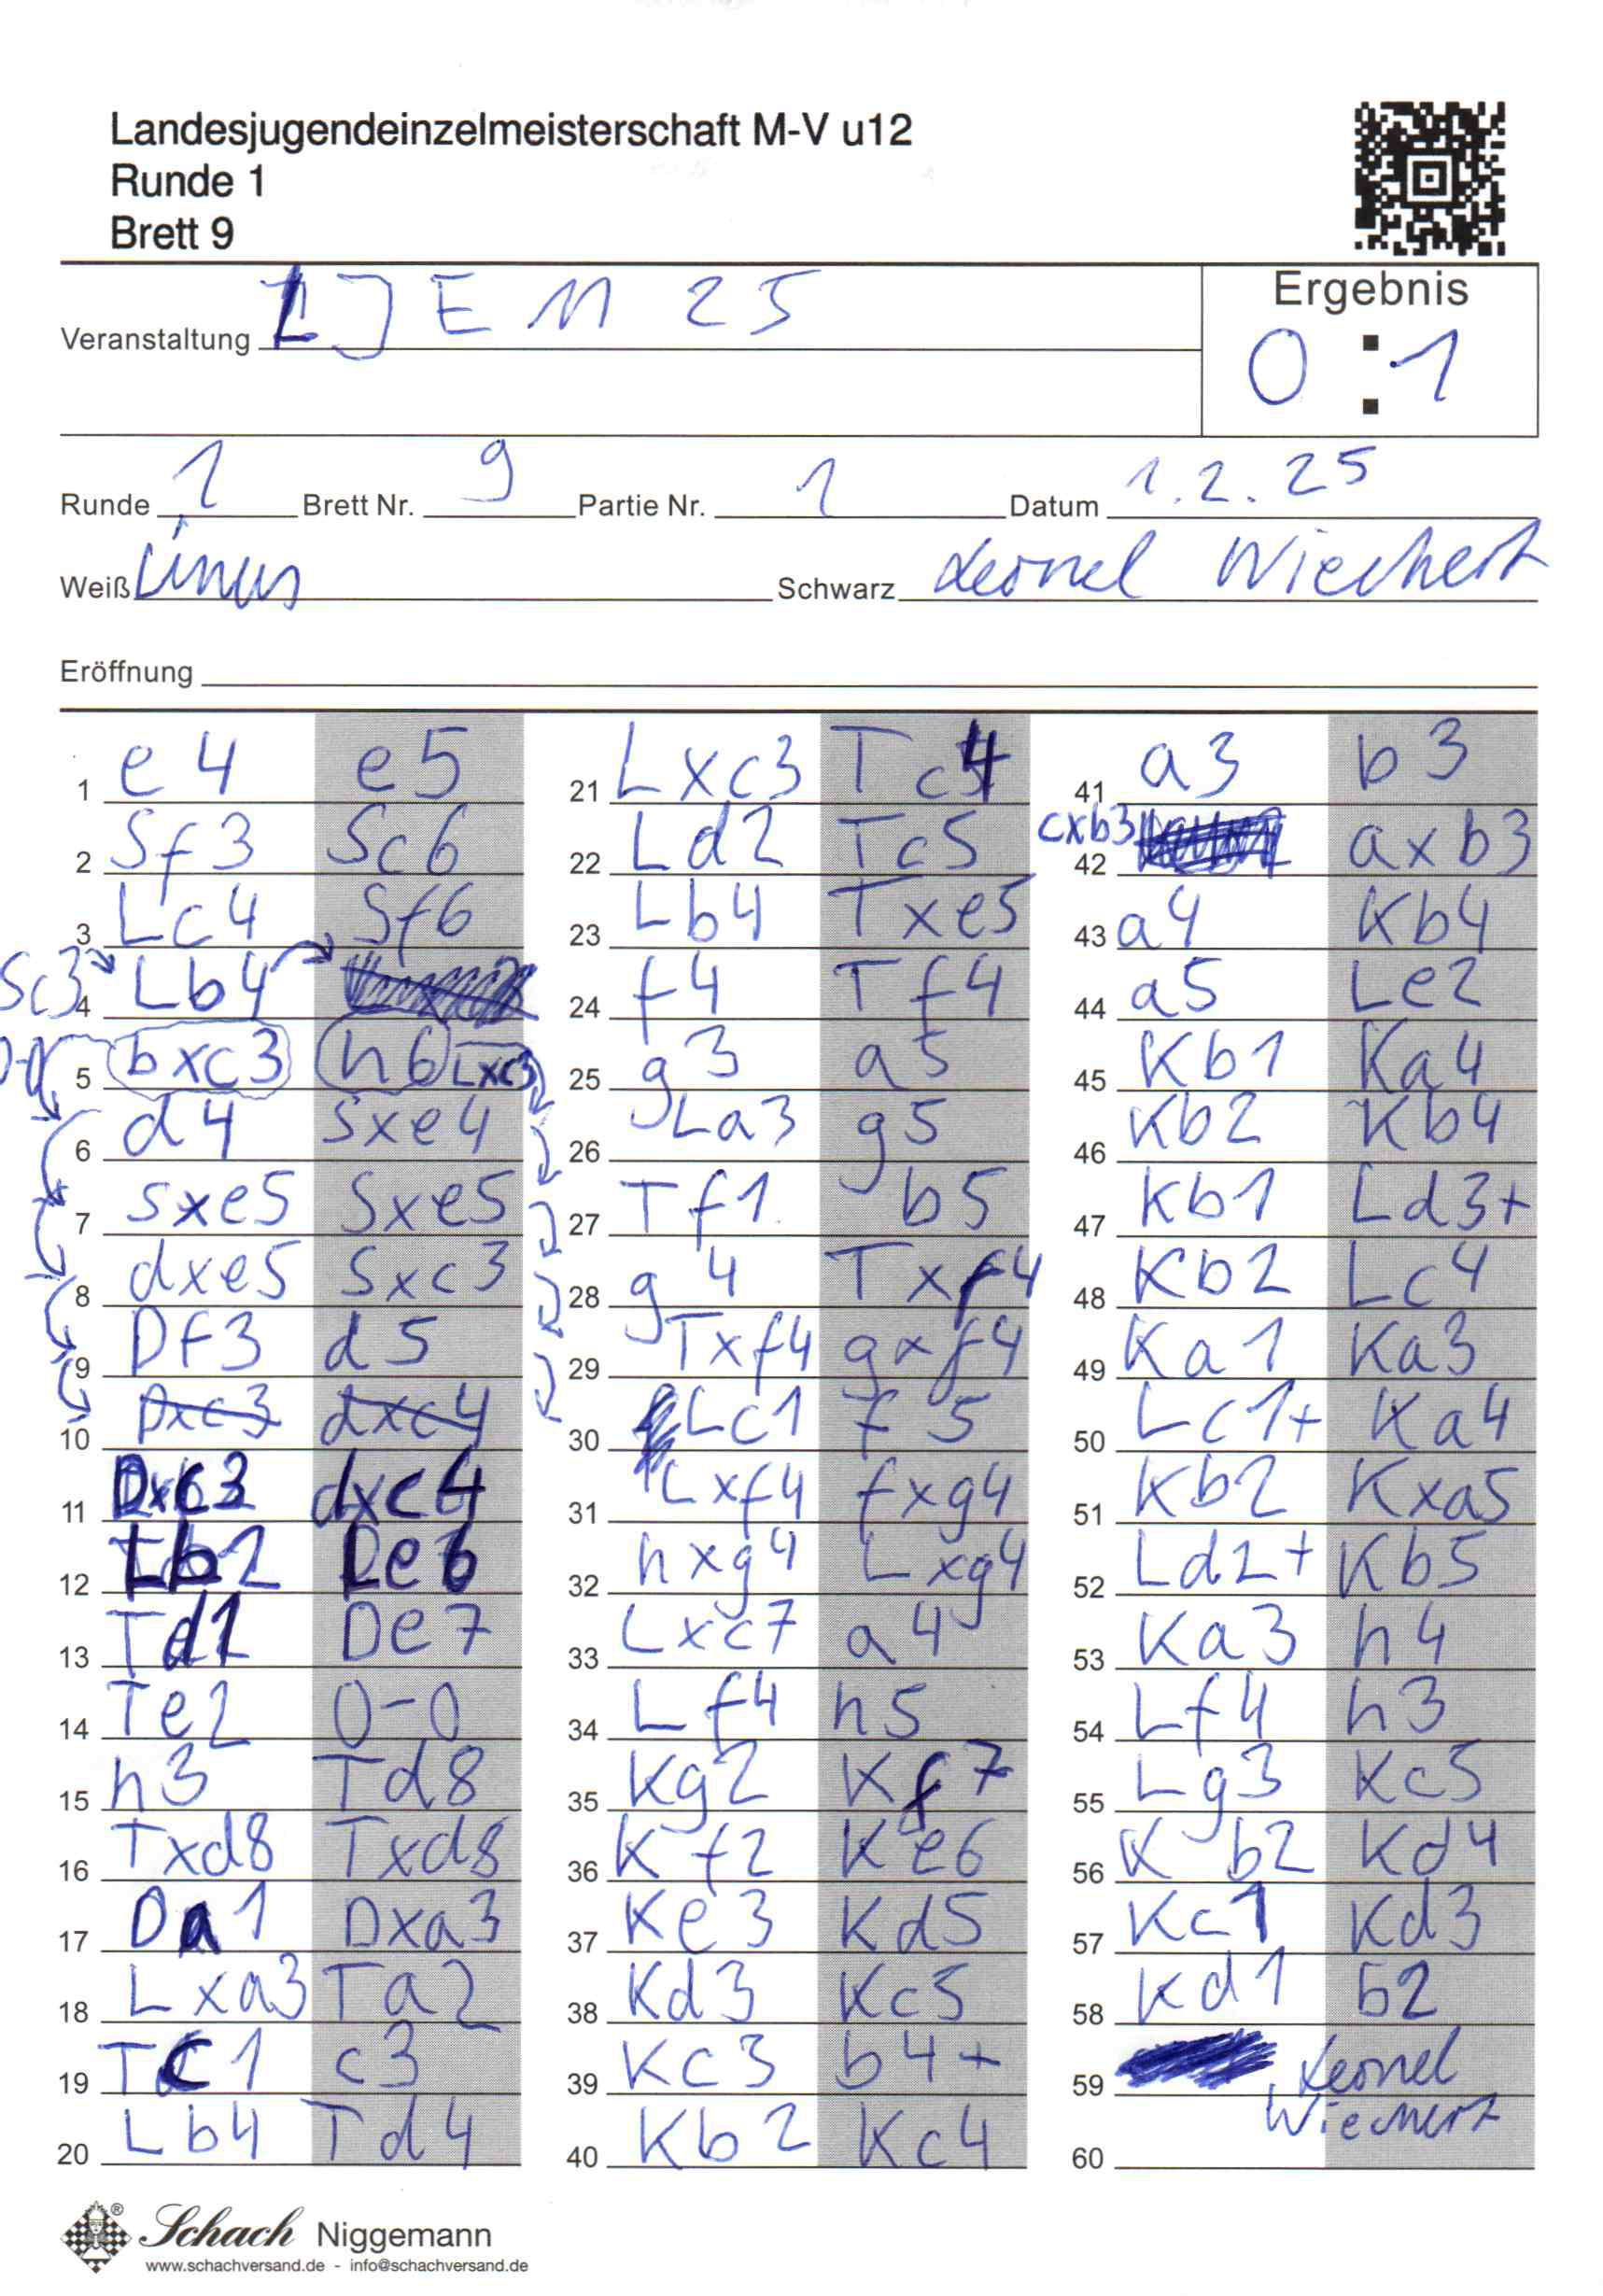 Landesjugendeinzelmeisterschaft M-V u12
Runde 1
Brett 9
Veranstaltung LJEM 25
Ergebnis
0 : 1
Runde 1 Brett Nr. 9 Partie Nr. 1 Datum 1.2.25
Weiß Linus Schwarz Leonel Wiechert
Eröffnung
1 e4 e5
2 Sf3 Sc6
3 Lc4 Sf6
Sc3 4 Lb4
0-0 5 bxc3 h6 Lxc3
6 d4 Sxe4
7 sxe5 Sxe5
8 dxe5 Sxc3
9 Df3 d5
10 Dxc3 dxc4
11 Dxc3 dxc4
12 Lb2 Le6
13 Td1 De7
14 Te2 0-0
15 h3 Td8
16 Txd8 Txd8
17 Da1 Dxa3
18 Lxa3 Ta2
19 Tc1 c3
20 Lb4 Td4
21 Lxc3 Tc4
22 Ld2 Tc5
23 Lb4 Txe5
24 f4 Tf4
25 g3 a5
26 La3 g5
27 Tf1 b5
28 g4 Txf4
29 Txf4 gxf4
30 Lc1 f5
31 Lxf4 fxg4
32 hxg4 Lxg4
33 Lxc7 a4
34 Lf4 h5
35 Kg2 Kf7
36 Kf2 Ke6
37 Ke3 Kd5
38 Kd3 Kc5
39 Kc3 b4+
40 Kb2 Kc4
41 a3 b3
42 cxb3 axb3
43 a4 Kb4
44 a5 Le2
45 Kb1 Ka4
46 Kb2 Kb4
47 Kb1 Ld3+
48 Kb2 Lc4
49 Ka1 Ka3
50 Lc1+ Ka4
51 Kb2 Kxa5
52 Ld2+ Kb5
53 Ka3 h4
54 Lf4 h3
55 Lg3 Kc5
56 Kb2 Kd4
57 Kc1 Kd3
58 Kd1 b2
59 Leonel
Wiechert
60
Schach Niggemann
www.schachversand.de - info@schachversand.de